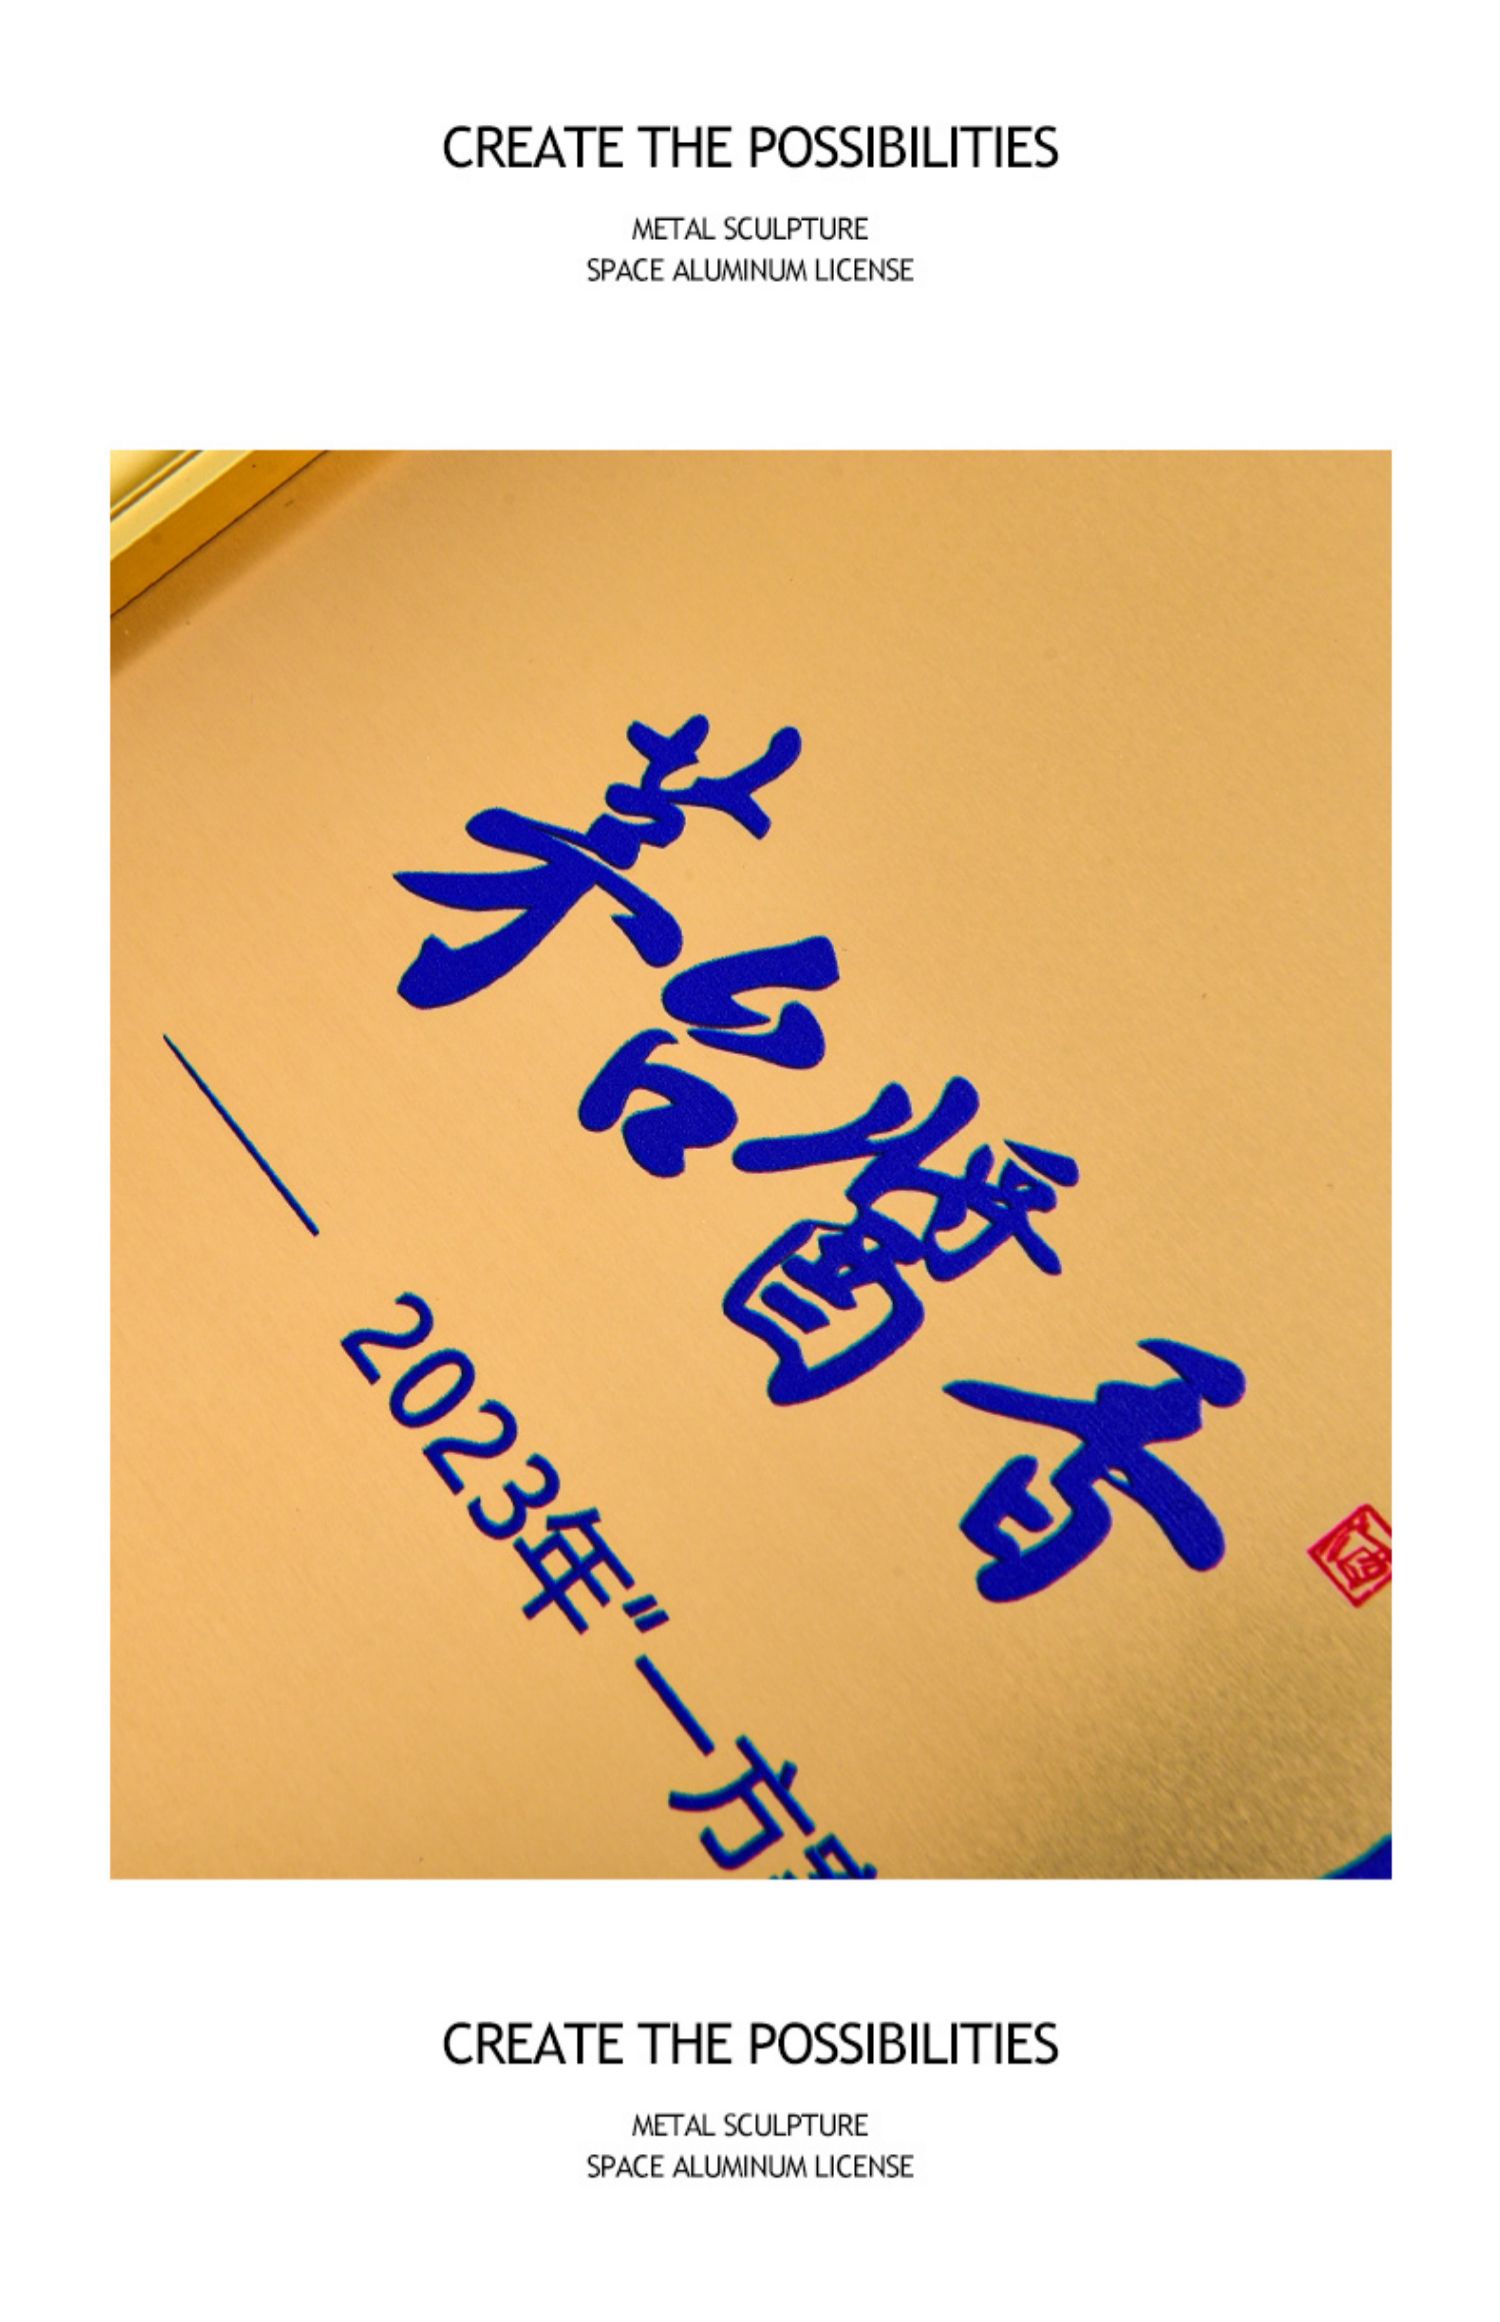 CREATE THE POSSIBILITIES
METAL SCULPTURE
SPACE ALUMINUM LICENSE
美台馨香
2023年"一方
CREATE THE POSSIBILITIES
METAL SCULPTURE
SPACE ALUMINUM LICENSE